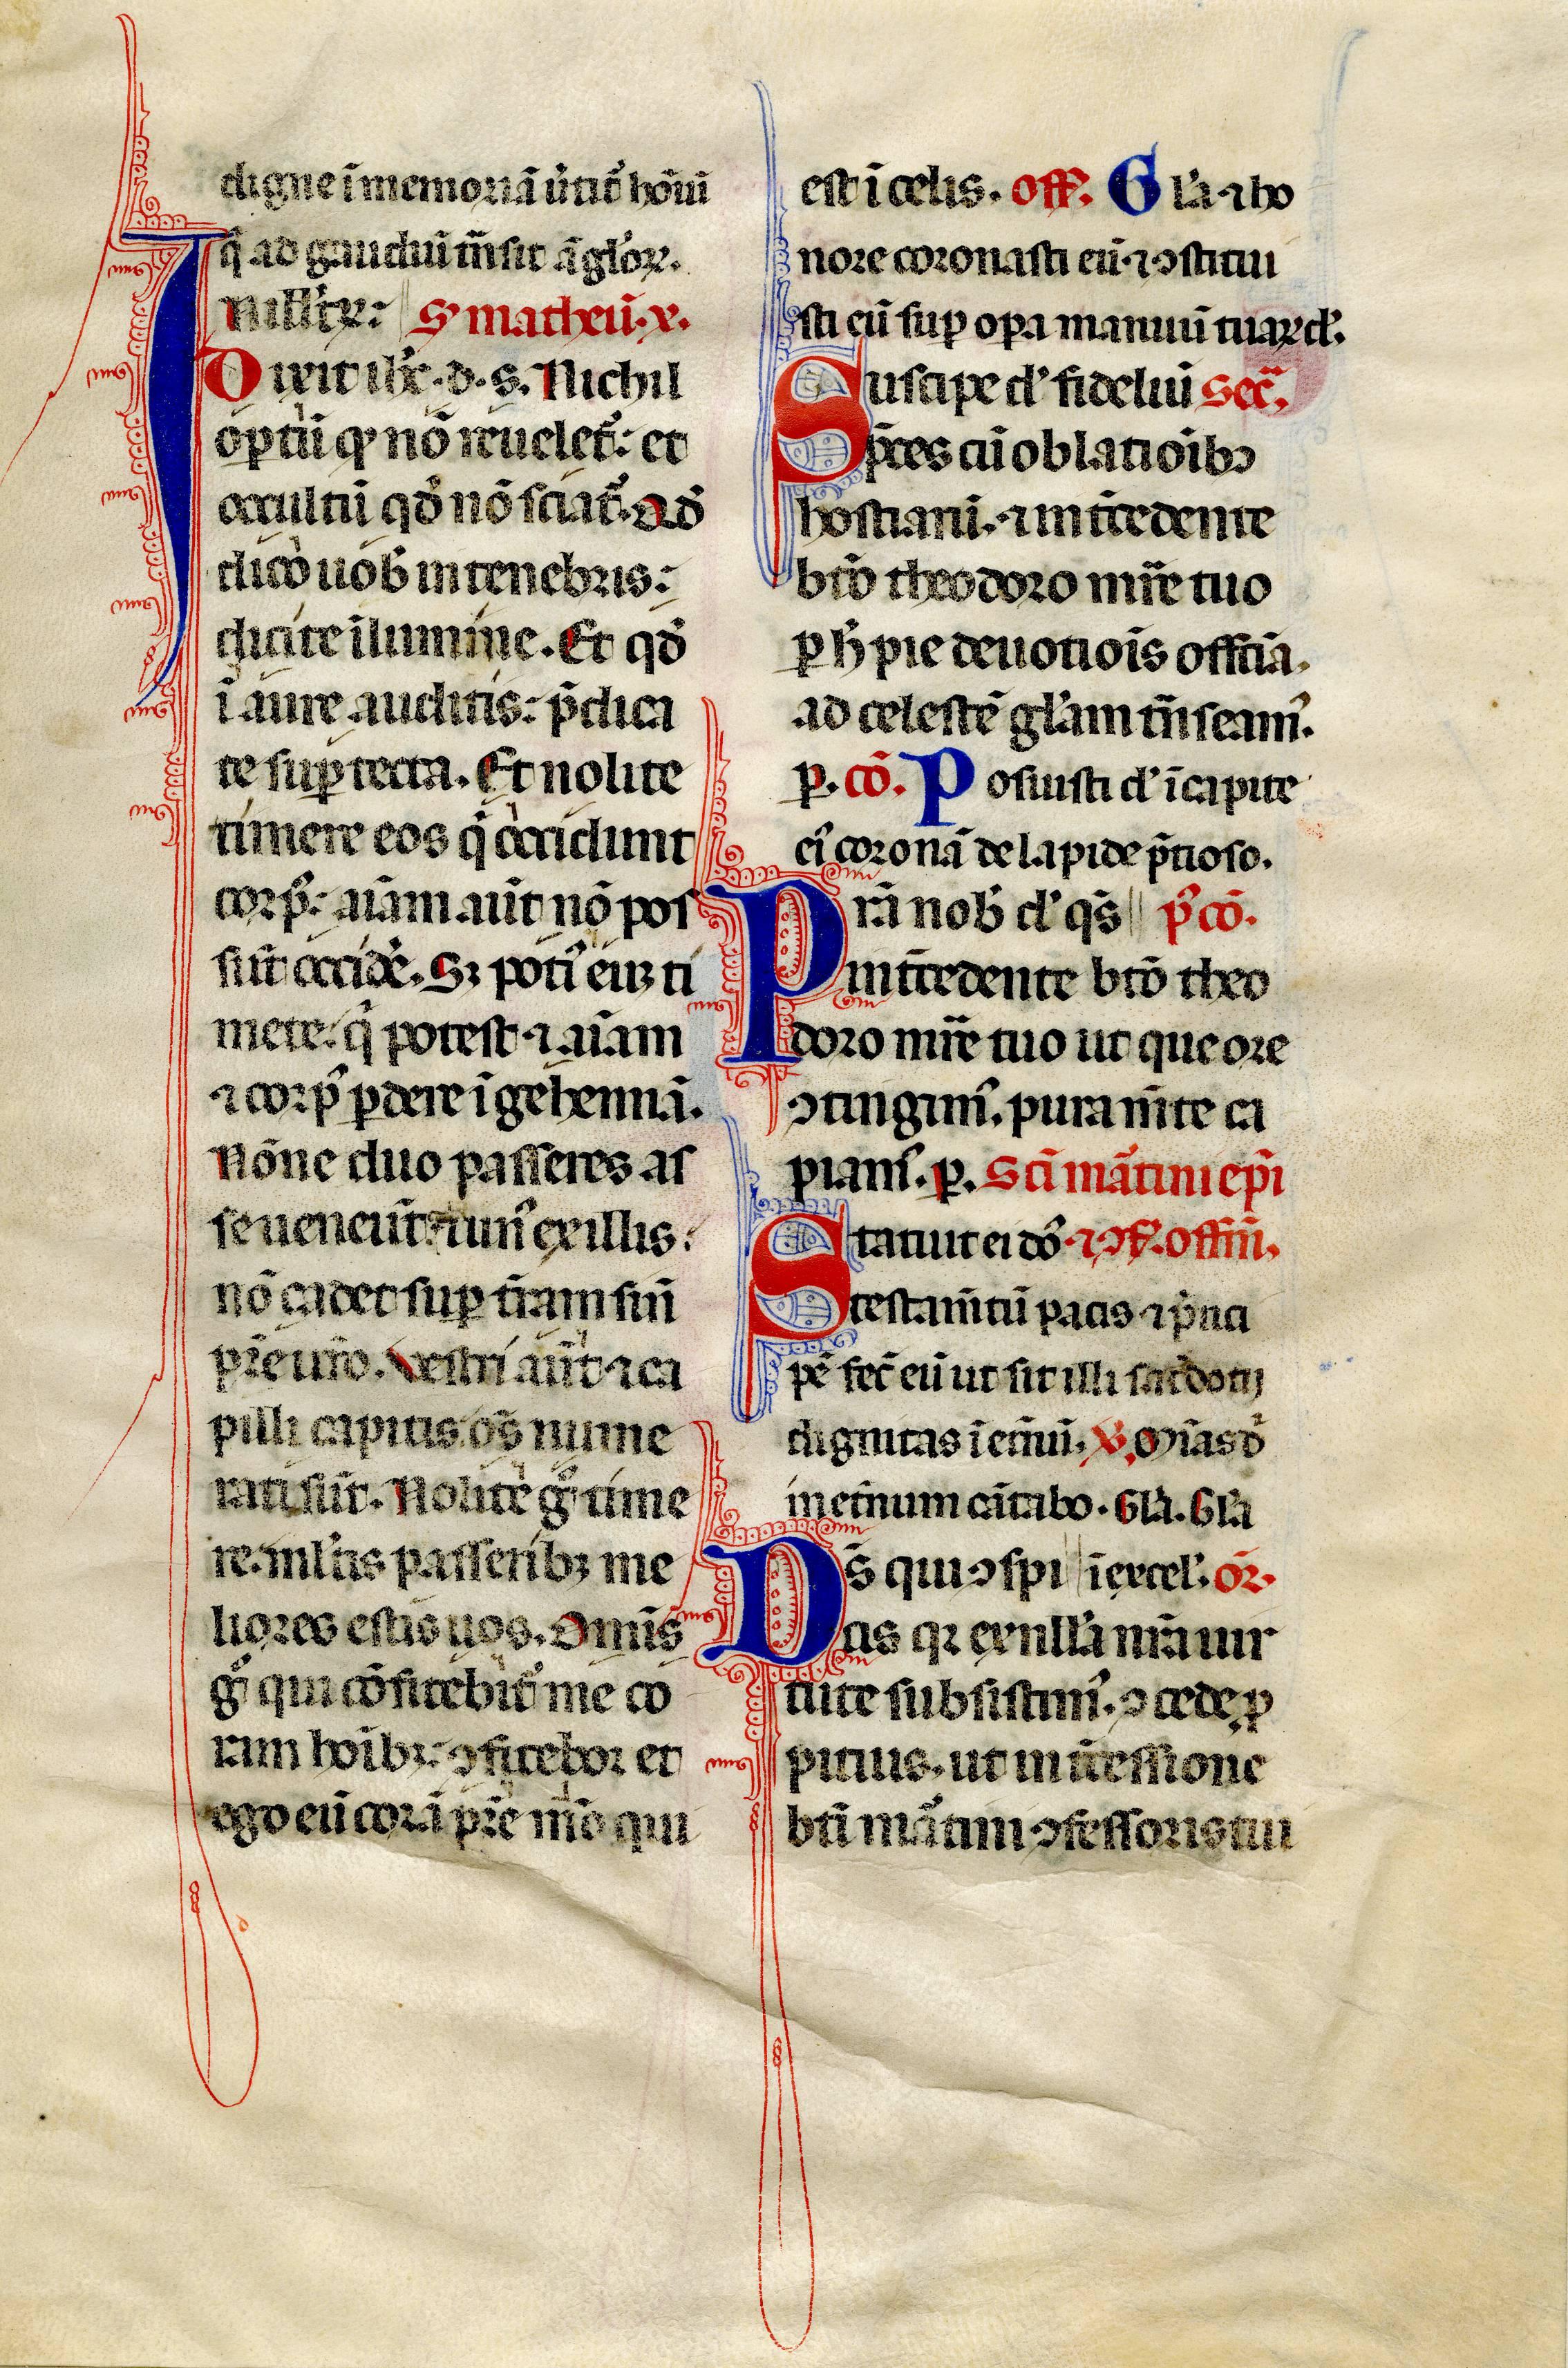 digne ī memoriā ūtit᷑ hōīuı
q̄ ad gaudiū tn̄sit āgl'oꝝ.
Nill'r͛: S matheū. x.
In illo Dixit ih̄c. d. s. Nichil
op̄tū qꝫ nō reuelet᷑: et
occultū qđ nō sciat᷑. Qđ
dico uob̄ in tenebris:
dicite ī lumine. Et qđ
ī aure auditis: p̄dica
te suꝑ tecta. Et nolite
timere eos q̄ occidunt
corpꝰ: aīam aūt nō pos
sūt occid̄e. Sꝫ potiꝰ eūꝫ ti
mete: q̄ potest ⁊ aīam
⁊ corpꝰ ꝑdere ī gehennā.
Nōne duo passeres as
se ueneūt: ⁊ unꝰ ex illis:
nō cadet suꝑ t̄ram sin̄
pr̄e ur̄o. Vestri aūt ⁊ ca
pilli capitis oꝫ̄s nume
rati sūt. Nolite g̊ time
re. ml'tis passeribꝫ me
liores estis uos. Omīs
g̊ qui cōfitebit᷑ me co
ram hoībꝫ: ꝯfitebor et
ego eū corā pr̄e mō qui
est ī celis. off. Gl'a ⁊ ho
nore coronasti eū ⁊ ꝯstitu
isti eū suꝑ opa manuū tuaꝝ d'.
Suscipe d' fideliū Sec̄.
p̄ces cū oblatiōibꝫ
hostiarū. ⁊ int̄cedente
btō theodoro mr̄e tuo
ꝑ h̄ pie deuotiōis offcia.
ad celestē gl'am tn̄seamꝰ.
ꝑ. cō. Posuisti d' ī capite
eiꝰ coronā de lapide p̄tioso.
Pr̄a nob̄ d' qs̄ pꝰ cō.
int̄cedente btō theo
doro mr̄e tuo ut que ore
ꝯtingimꝰ. pura mn̄te ca
piamꝰ. ꝑ. Sc̄i mar̄tini ep̄i
Statuit ei dō ⁊ ꝯf. offm̄.
testam̄tū pacis ⁊ p̄nci
pē fec̄ eū ut sit illi sac̄dotij
dignitas ī et̄nū. V. Mīas d̄
in et̄num cātabo. Gl'a. Gl'a
Ds̄ qui ꝯspi ī excel'. or̄.
cis qꝫ ex null'a nr̄a uir
tute subsistimꝰ. ꝯcede ꝓ
pitius. ut int̄cessione
bt̄i mar̄tini ꝯfessoris tui